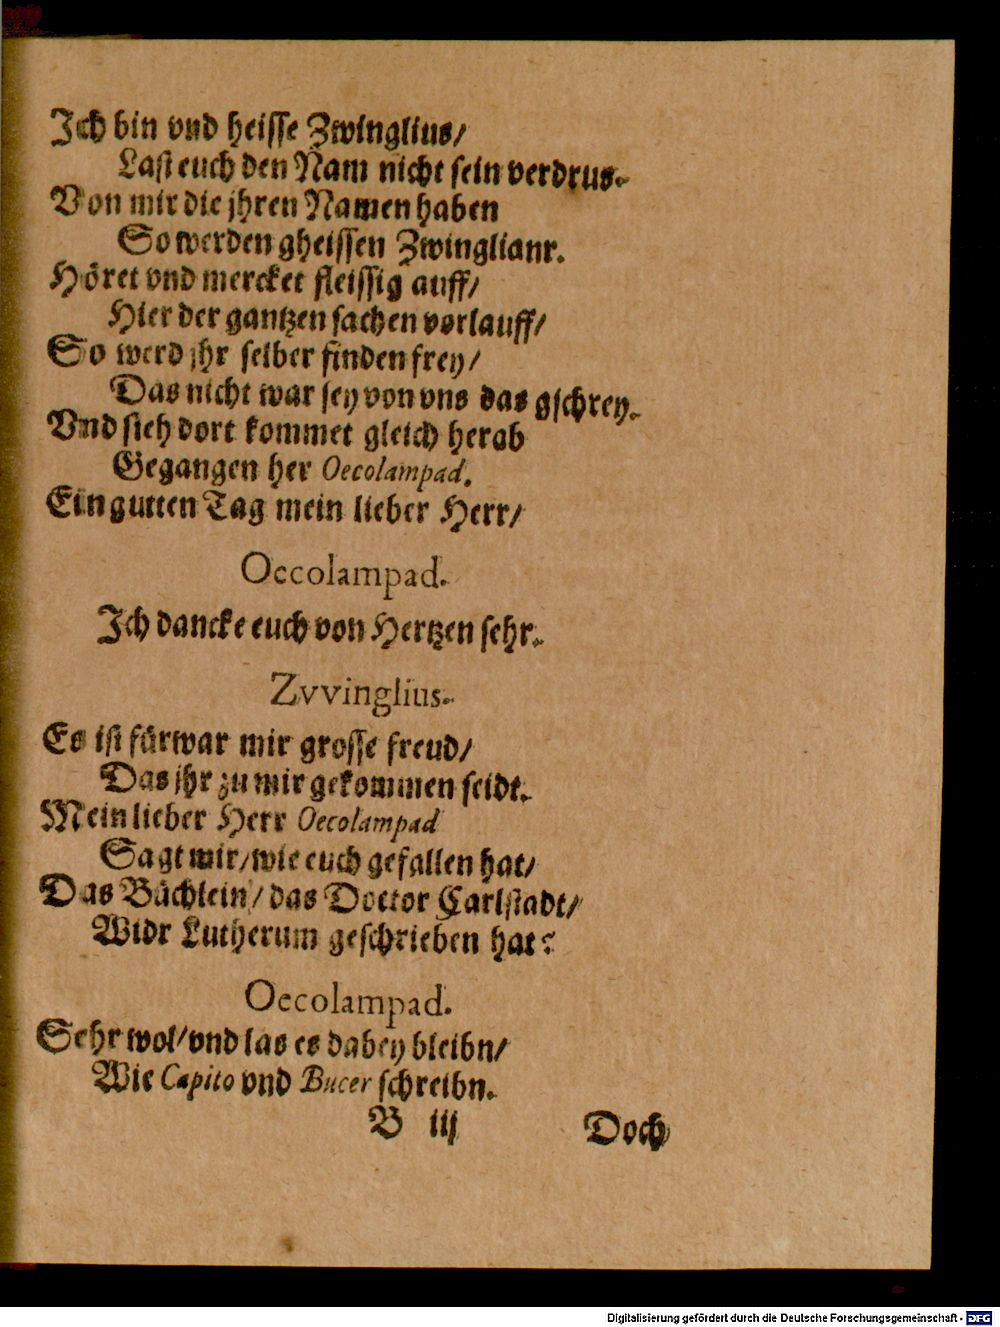 Ich bin vnd heisse Zwinglius/
Last euch den Nam nicht sein verdrus.
Von mir die jhren Namen haben
So werden gheissen Zwinglianr.
Höret vnd mercket fleissig auff/
Hier der gantzen sachen vorlauff/
So werd jhr selber finden frey/
Das nicht war sey von vns das gschrey.
Vnd sieh dort kommet gleich herab
Gegangen her Oecolampad.
Ein gutten Tag mein lieber Herr/
Oecolampad.
Ich dancke euch von Hertzen sehr.
Zvvinglius.
Es ist fürwar mir grosse freud/
Das jhr zu mir gekommen seidt.
Mein lieber Herr Oecolampad
Sagt mir/ wie euch gefallen hat/
Das Büchlein/ das Doctor Carlstadt/
Widr Lutherum geschrieben hat?
Oecolampad.
Sehr wol/ vnd las es dabey bleibn/
Wie Capito vnd Bucer schreibn.
B iij Doch
Digitalisierung gefördert durch die Deutsche Forschungsgemeinschaft - DFG